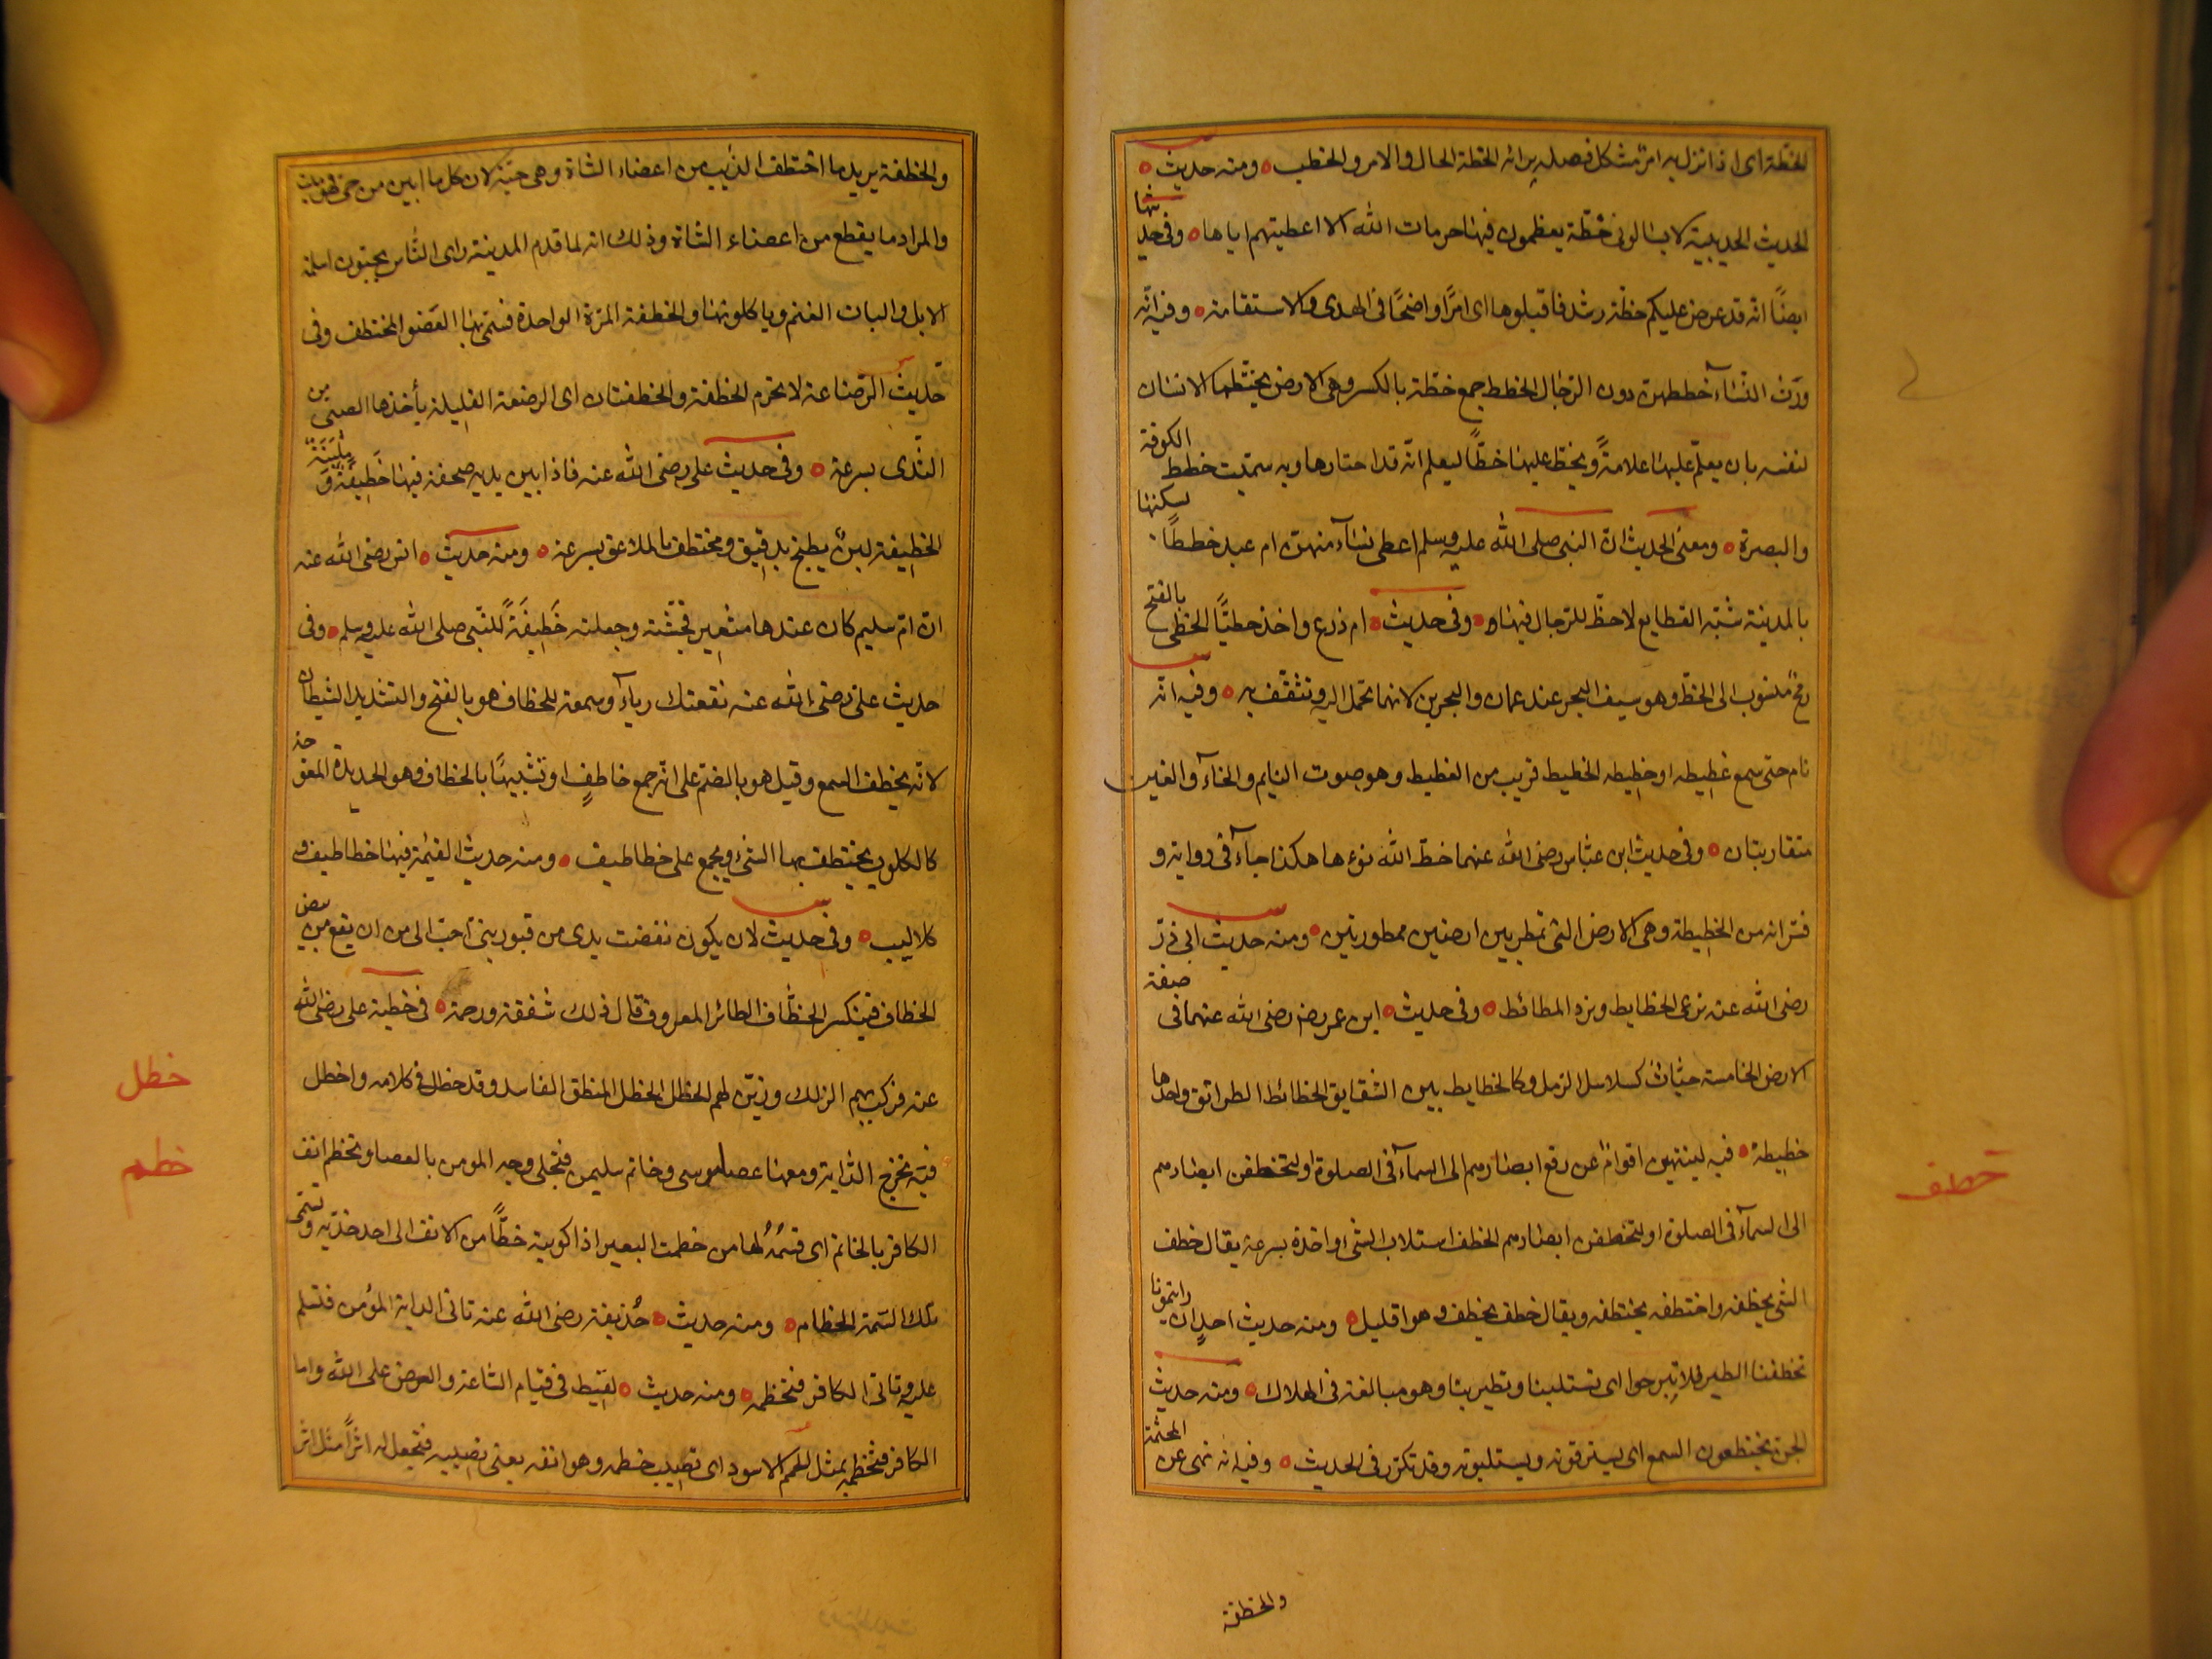 الخطّة اى اذا نزل به امر مشكل فصله برائه الخطة الحال والامر والخطب ه ومنه حديث ه
الحديث الحديبية لا يسالونى خطّة يعظمون فيها حرمات الله الا اعطيتهم اياها ه وفى حديثها
ايضًا انه قد عرض عليكم خطّة رشد فاقبلوها اى امرًا واضحًا فى الهدى والاستقامة ه وفيه انّه
ورّث النّسآء خططهنّ دون الرّجال الخطط جمع خطّة بالكسر وهى الارض يختطّها الانسان
لنفسه بان يعلّم عليها علامةً ويخطّ عليها خطًّا ليعلم انّه قد احتازها وبه سمّيت خطط الكوفة
والبصرة ه ومعنى الحديث انّ النبى صلى الله عليه وسلم اعطى نسآء منهنّ ام عبد خططًا لسكنها
بالمدينة شبّه القطايع لا حظّ للرجال فيها ه وفى حديث ه ام ذرع واخذ خطيًّا الخطّى بالفتح
رمحٌ منسوب الى الخطّ وهو سيف البحر عند عمان والبحرين لانها تحمل اليه وتثقّف به ه وفيه انّه
نام حتى سمع غطيطه او خطيطه الخطيط قريب من الغطيط وهو صوت النايم والخآء والغين
متقاربتان ه وفى حديث ابن عبّاس رضى الله عنهما خطّ الله نوءها هكذا جآء فى رواية و
فسّر انه من الخطيطة وهى الارض التى تمطر بين ارضين ممطورتين ه ومنه حديث ابى ذرّ
رضى الله عنه نرعى الخطايط ونرد المطائط ه وفى حديث ه ابن عمر رضى الله عنهما فى صفة
الارض الخامسة حيّات كسلاسل الرمل وكالخطايط بين الشقايق الخطائط الطرائق واحدها
خطيطة ه فيه لينتهين اقوامٌ عن رفع ابصارهم الى السمآء فى الصلوة او لتخطفن ابصارهم
الى السمآء فى الصلوة او لتخطفن ابصارهم الخطف استلاب الشى واخذه بسرعة يقال خطف
الشى يخطفه واختطفه يختطفه ويقال خطف يخطف وهو اقليل ه ومنه حديث احدٍ ان رايتمونا
تخطفنا الطير فلا تبرحوا اى تستلبنا وتطير بنا وهو مبالغة فى الهلاك ه ومنه حديث
الجن يختطعون السمع اى يسترقونه ويستلبونه وقد تكرّر فى الحديث ه وفيه انه نهى عن المجثّمة
والخطفة
خطف
والخطفة يريد ما اختطف الذئب من اعضاء الشاة وهى حيّة لان كل ما ابين من حىّ فهو ميت
والمراد ما يقطع من اعضاء الشاة وذلك انه لما قدم المدينة راى النّاس يجبّون اسلمة
الابل واليات الغنم وياكلونها والخطفة المرّة الواحدة فسمّى بها العضو المختطف وفى
حديث الرّضاعة لا يحّرم الخطفة والخطفتان اى الرضعة القليلة يأخذها الصبى من
الثّدى بسرعة ه وفى حديث على رضى الله عنه فاذا بين يديه صحفة فيها خَطِيفَةٌ وَ مِلْبَنَةٌ
الخطيفة لبنٌ يطبخ بدقيق ويختطف بالملاعق بسرعة ه ومنه حديث ه انس رضى الله عنه
انّ امّ سليم كان عندها شعير فجشّته وجعلته خَطِيفَةً للنّبى صلى الله عليه وسلم ه وفى
حديث على رضى الله عنه نفقتك رياءً وسمعة للخطاف هو بالفتح والتشديد الشيطان
لانّه يخطف السمع وقيل هو بالضمّ على انّه جمع خاطفٍ او تشبيهًا بالخطاف وهو الحديدة المعوّجة
كالكلوب يختطف بها الشىء ويجمع على خطاطيف ه ومنه حديث القيٰمة فيها خطاطيف و
كلاليب ه وفى حديث لان يكون نفضت يدى من قبور بنىّ احبّ الى من ان يقع من بيض
الخطاف فينكسر الخطّاف الطائر المعروف قال ذلك شفقة ورحمة ه فى خطبة على رضى الله
عنه فركب بهم الزلل وزيّن لهم الخطل الخطل المنطق الفاسد وقد خطل فى كلامه واخطل
فيه تخرج الدّابة ومعها عصا موسى وخاتم سليمن فتجلى وجه المومن بالعصا وتخطم انف
الكافر بالخاتم اى فتسمُهُ بها من خطمت البعير اذا كويته خطًّا من الانف الى احد خدّيه و تسمّى
تلك السّمة الخطام ه ومنه حديث ه حُذيفة رضى الله عنه تاتى الدابة المؤمن فتسلم
عليه وتاتى الكافر فتخطمه ه ومنه حديث ه لقيط فى قيام السّاعة والعرض على الله واما
الكافر فتخطمه بمثل الحمم الاسود اى تصيب خطمه وهو انفه يعنى تصيبه فتجعل له اثرًا مثل اثر
خطل
خطم